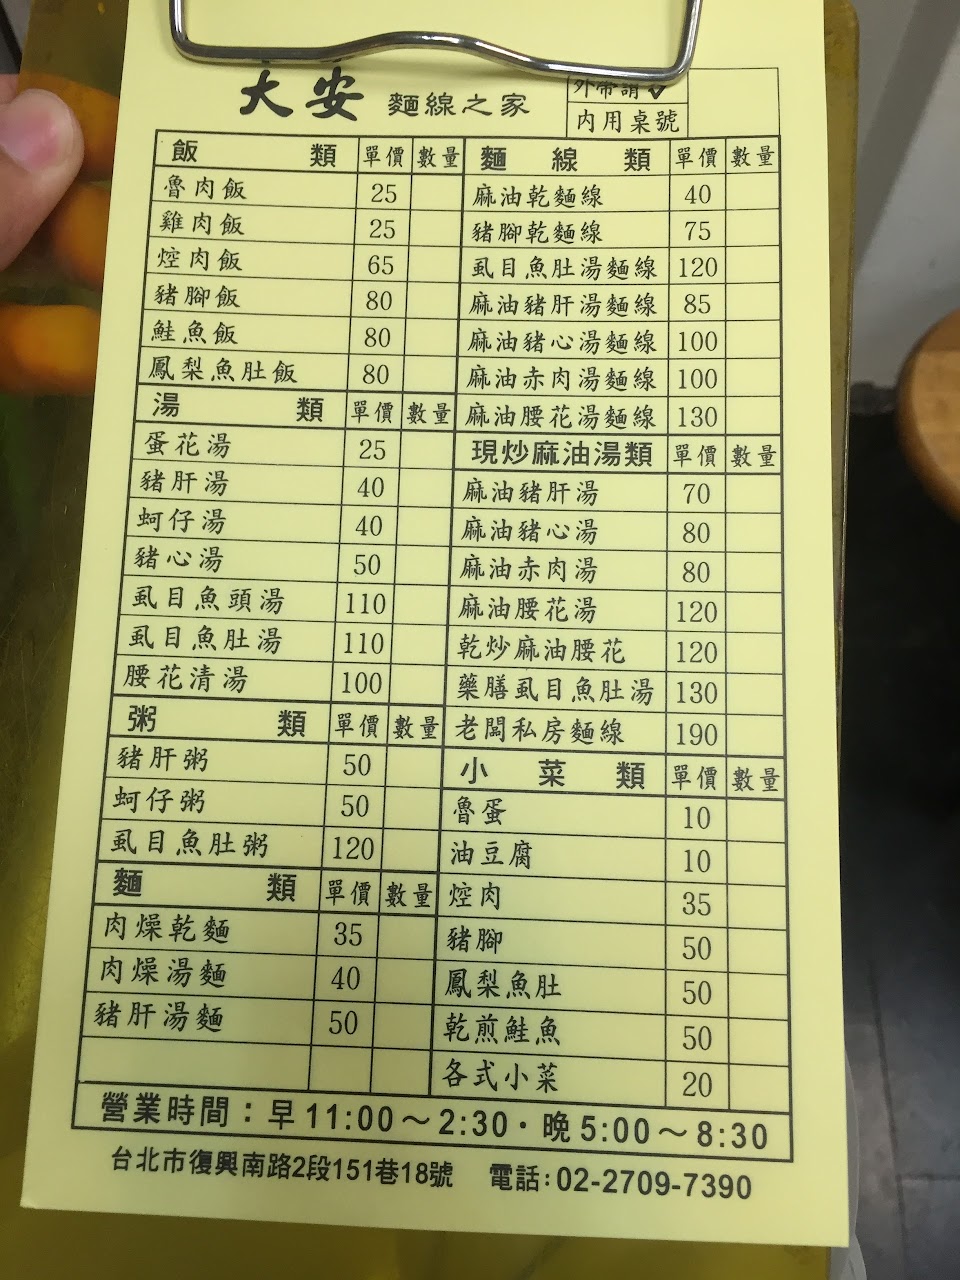 大安 麵線之家
外帶請✓
內用桌號
飯類 單價 數量
魯肉飯 25
雞肉飯 25
焢肉飯 65
豬腳飯 80
鮭魚飯 80
鳳梨魚肚飯 80
湯類 單價 數量
蛋花湯 25
豬肝湯 40
蚵仔湯 40
豬心湯 50
虱目魚頭湯 110
虱目魚肚湯 110
腰花清湯 100
粥類 單價 數量
豬肝粥 50
蚵仔粥 50
虱目魚肚粥 120
麵類 單價 數量
肉燥乾麵 35
肉燥湯麵 40
豬肝湯麵 50
麵線類 單價 數量
麻油乾麵線 40
豬腳乾麵線 75
虱目魚肚湯麵線 120
麻油豬肝湯麵線 85
麻油豬心湯麵線 100
麻油赤肉湯麵線 100
麻油腰花湯麵線 130
現炒麻油湯類 單價 數量
麻油豬肝湯 70
麻油豬心湯 80
麻油赤肉湯 80
麻油腰花湯 120
乾炒麻油腰花 120
藥膳虱目魚肚湯 130
老闆私房麵線 190
小菜類 單價 數量
魯蛋 10
油豆腐 10
焢肉 35
豬腳 50
鳳梨魚肚 50
乾煎鮭魚 50
各式小菜 20
營業時間：早11:00～2:30・晚5:00～8:30
台北市復興南路2段151巷18號 電話:02-2709-7390